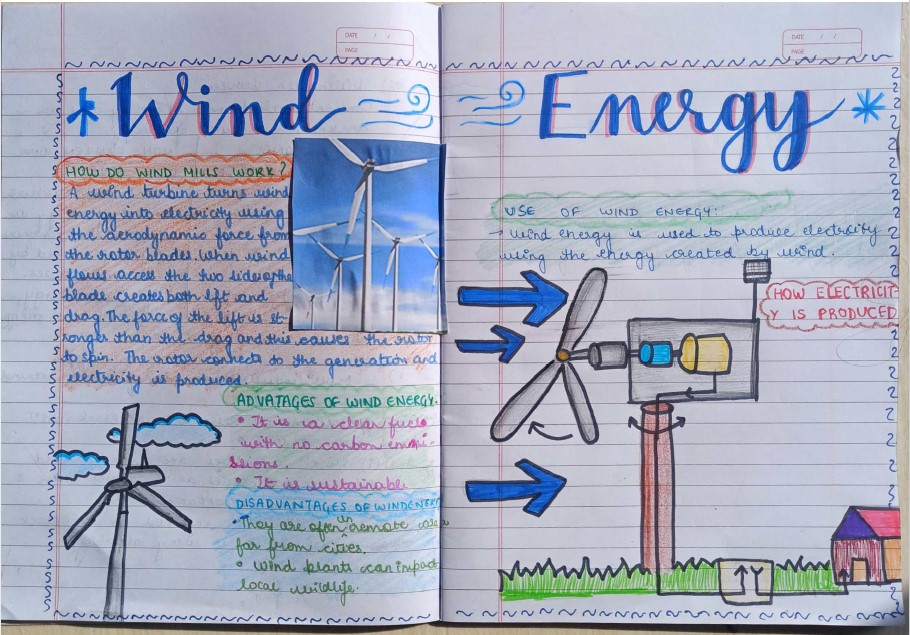 DATE / /
PAGE
DATE / /
PAGE
Wind Energy
HOW DO WIND MILLS WORK?
A wind turbine turns wind
energy into electricity using
the aerodynamic force from
the rotor blades. When wind
flows access the two side of the
blade creates both lift and
drag. The force of the lift is st-
ronger than the drag and this causes the rotor
to spin. The rotor connects to the generation and
electricity is produced.
ADVATAGES OF WIND ENERGY.
• It is a clear fuel
with no carbon
ssions.
• It is sustainable
DISADVANTAGES OF WIND ENERGY
• They are often in remote
far from cities.
• Wind plants can impact
local wildlife.
USE OF WIND ENERGY:
→ Wind energy is used to produce electricity
using the energy created by wind.
HOW ELECTRICIT-
Y IS PRODUCED